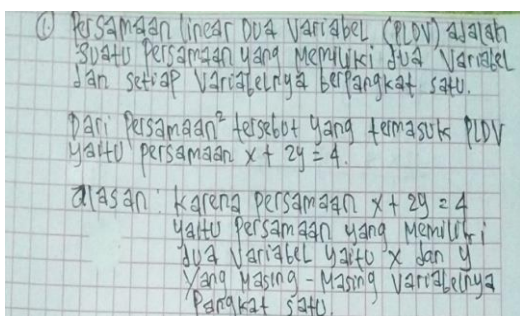 ① Persamaan linear Dua Variabel (PLDV) adalah
suatu persamaan yang memiliki dua variabel
dan setiap variabelnya berpangkat satu.
Dari persamaan² tersebut yang termasuk PLDV
yaitu persamaan x + 2y = 4.
alasan : karena persamaan x + 2y = 4
yaitu persamaan yang memiliki
dua variabel yaitu x dan y
yang masing-masing variabelnya
pangkat satu.